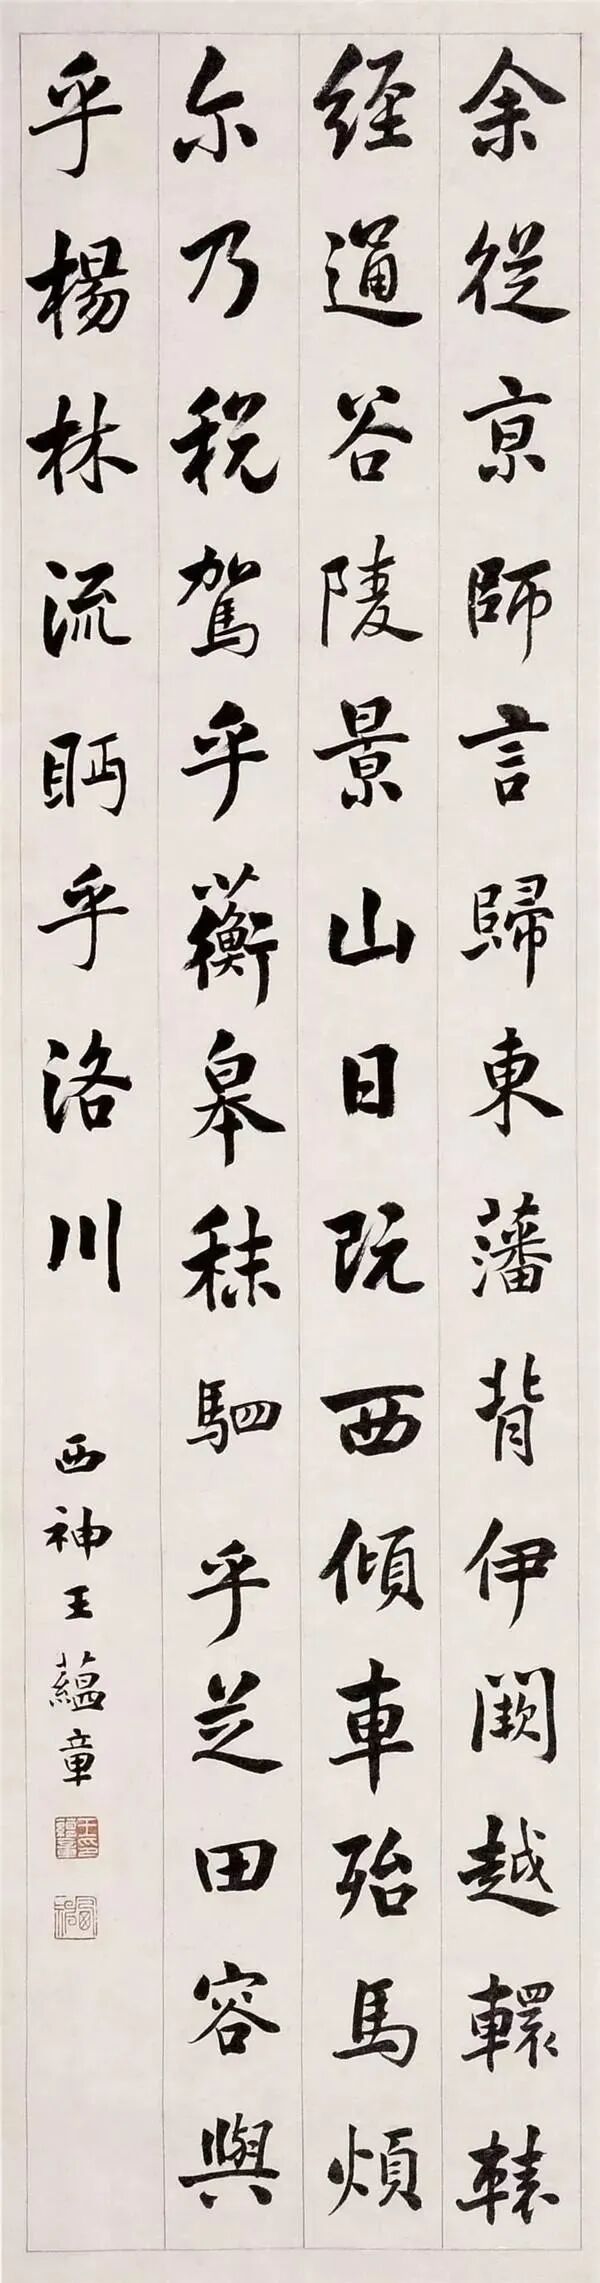 余從亰師言歸東藩背伊闕越轘轅
經通谷陵景山日既西傾車殆馬煩
尔乃税駕乎蘅皋秣駟乎芝田容與
乎楊林流眄乎洛川
西神王蘊章
王印蘊章
西神